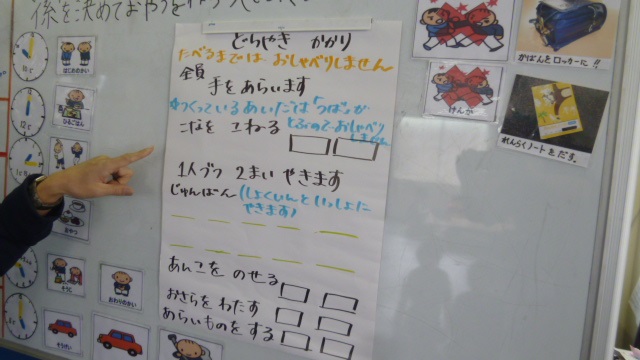 係を決めておやつを
どらやき かかり
たべるまでは おしゃべりしません
全員
手をあらいます
※つくっているあいだは「つば」が
こなを こねる とぶのでおしゃべり
しません
1人ブつ 2まい やきます
じゅんばん (しょくいんといっしょに
やきます)
あんこを のせる
おさらをわたす
あらいものをする
はじめのかい
ひるごはん
おやつ
そうじ
おわりのかい
けんか
かばんをロッカーに!!
れんらくノートをだす。